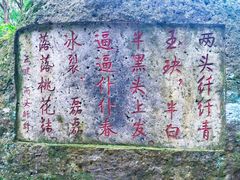 两头纤纤青
玉玦 半白
半黑头上发
逼逼仆仆春
冰裂 磊磊
落落桃花结